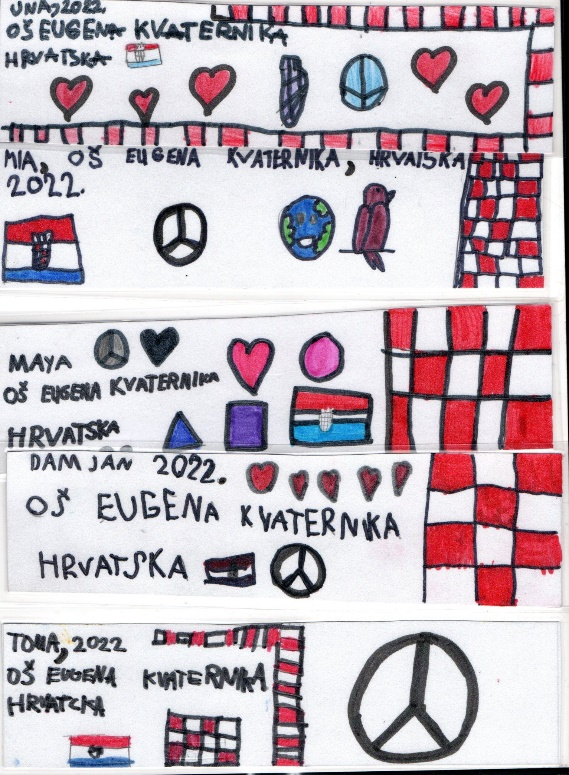 UNA, 2022.
OŠ EUGENA KVATERNIKA
HRVATSKA
MIA, OŠ EUGENA KVATERNIKA, HRVATSKA
2022.
MAYA
OŠ EUGENA KVATERNIKA
HRVATSKA
DAMJAN 2022.
OŠ EUGENA KVATERNIKA
HRVATSKA
2022
OŠ EUGENA KVATERNIKA
HRVATCKA